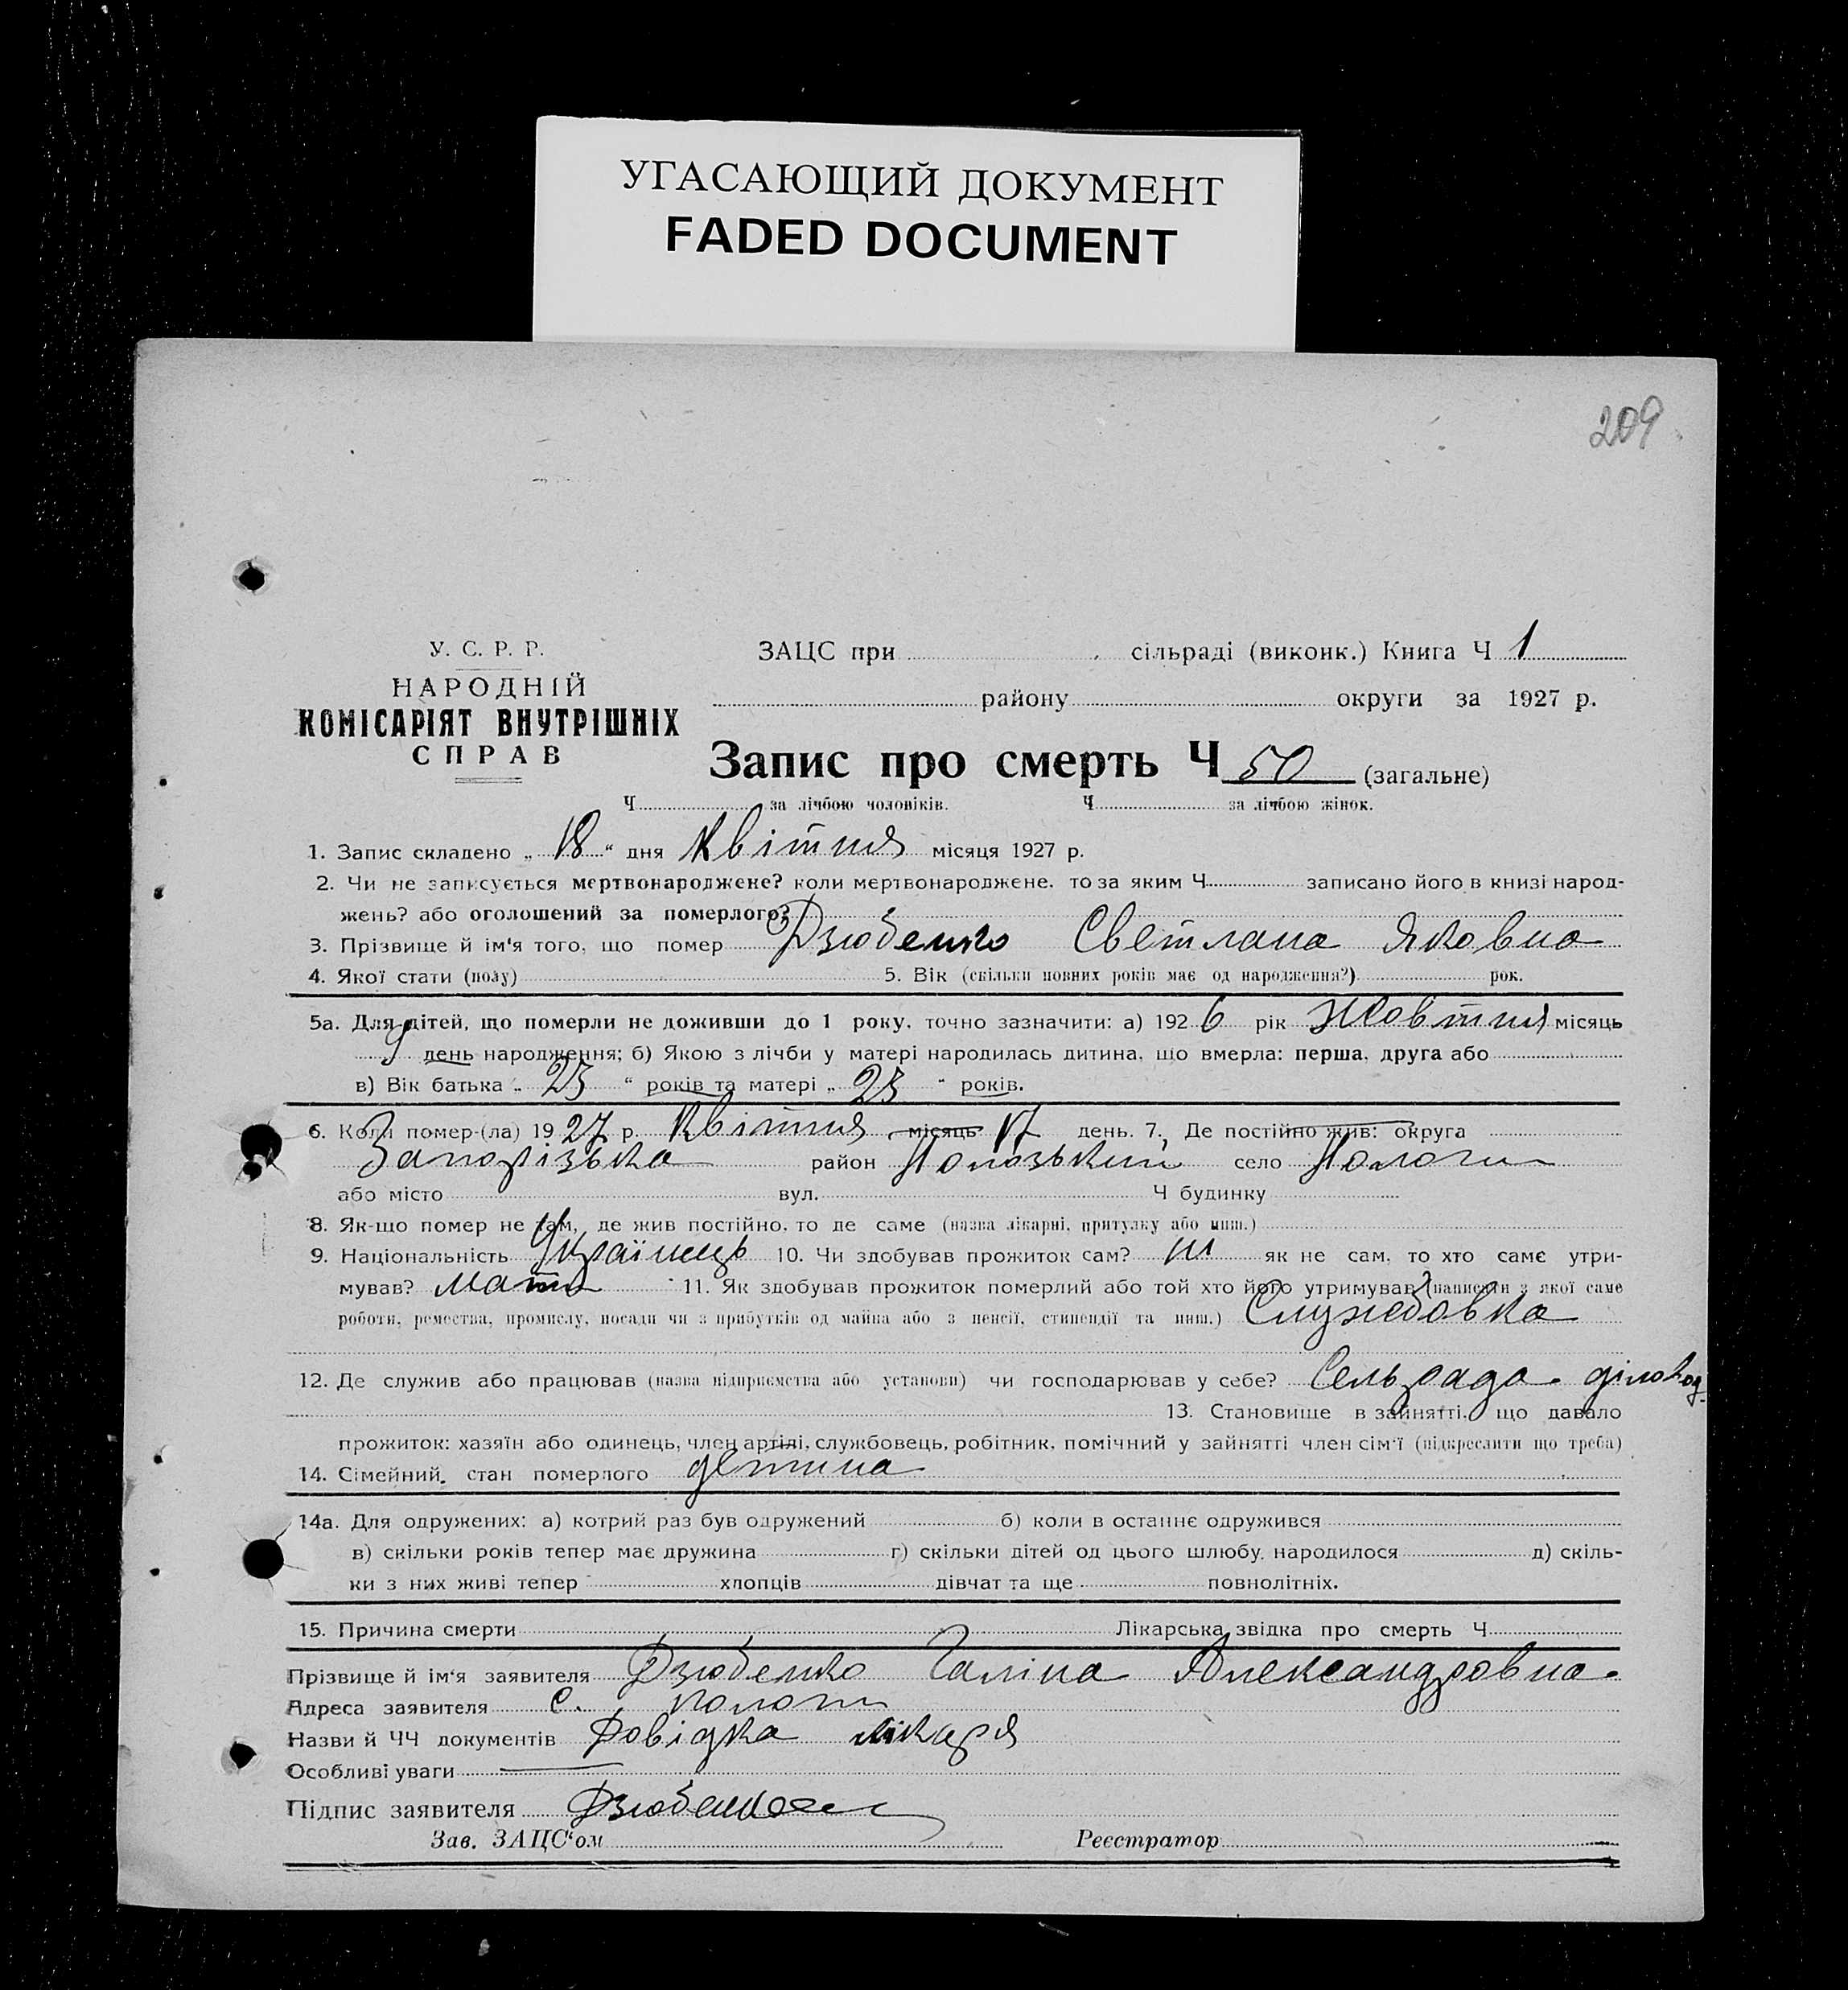 УГАСАЮЩИЙ ДОКУМЕНТ
FADED DOCUMENT
209
У. С. Р. Р.
НАРОДНІЙ
КОМІСАРІЯТ ВНУТРІШНІХ
СПРАВ
ЗАЦС при сільраді (виконк.) Книга Ч 1
району округи за 1927 р.
Запис про смерть Ч 50 (загальне)
Ч за лічбою чоловіків. Ч за лічбою жінок.
1. Запис складено „ 18 “ дня Квітня місяця 1927 р.
2. Чи не записується мертвонароджене? коли мертвонароджене. то за яким Ч записано його в книзі народ-
жень? або оголошений за померлого?
3. Прізвище й ім'я того, що помер Дзюбенко Светлана Яковна
4. Якої стати (полу) 5. Вік (скільки повних років має од народження?) рок.
5а. Для дітей, що померли не доживши до 1 року, точно зазначити: а) 192 6 рік Жовтня місяць
9 день народження; б) Якою з лічби у матері народилась дитина, що вмерла: перша, друга або
в) Вік батька „ 23 “ років та матері „ 23 “ років.
6. Коли помер-(ла) 19 27 р. Квітня місяць 17 день. 7. Де постійно жив: округа
Запорізька район Пологзький село Пологи
або місто вул. Ч будинку
8. Як-що помер не там, де жив постійно, то де саме (назва лікарні, притулку або инш.)
9. Національність Українець 10. Чи здобував прожиток сам? ні як не сам, то хто саме утри-
мував? мати 11. Як здобував прожиток померлий або той хто його утримував? (написати з якої саме
роботи, ремества, промислу, посади чи з прибутків од майна або з пенсії, стипендії та инш.) Служебовка
12. Де служив або працював (назва підприємства або установи) чи господарював у себе? Сельрада. діловод.
13. Становище в зайнятті, що давало
прожиток: хазяїн або одинець, член артілі, службовець, робітник, помічний у зайнятті член сім'ї (підкреслити що треба)
14. Сімейний стан померлого детина
14а. Для одружених: а) котрий раз був одружений б) коли в останнє одружився
в) скільки років тепер має дружина г) скільки дітей од цього шлюбу народилося д) скіль-
ки з них живі тепер хлопців дівчат та ще повнолітніх.
15. Причина смерти Лікарська звідка про смерть Ч
Прізвище й ім'я заявителя Дзюбенко Галіна Александровна.
Адреса заявителя с. Пологи
Назви й ЧЧ документів Довідка лікаря
Особливі уваги
Підпис заявителя Дзюбенко
Зав. ЗАЦС'ом Реєстратор